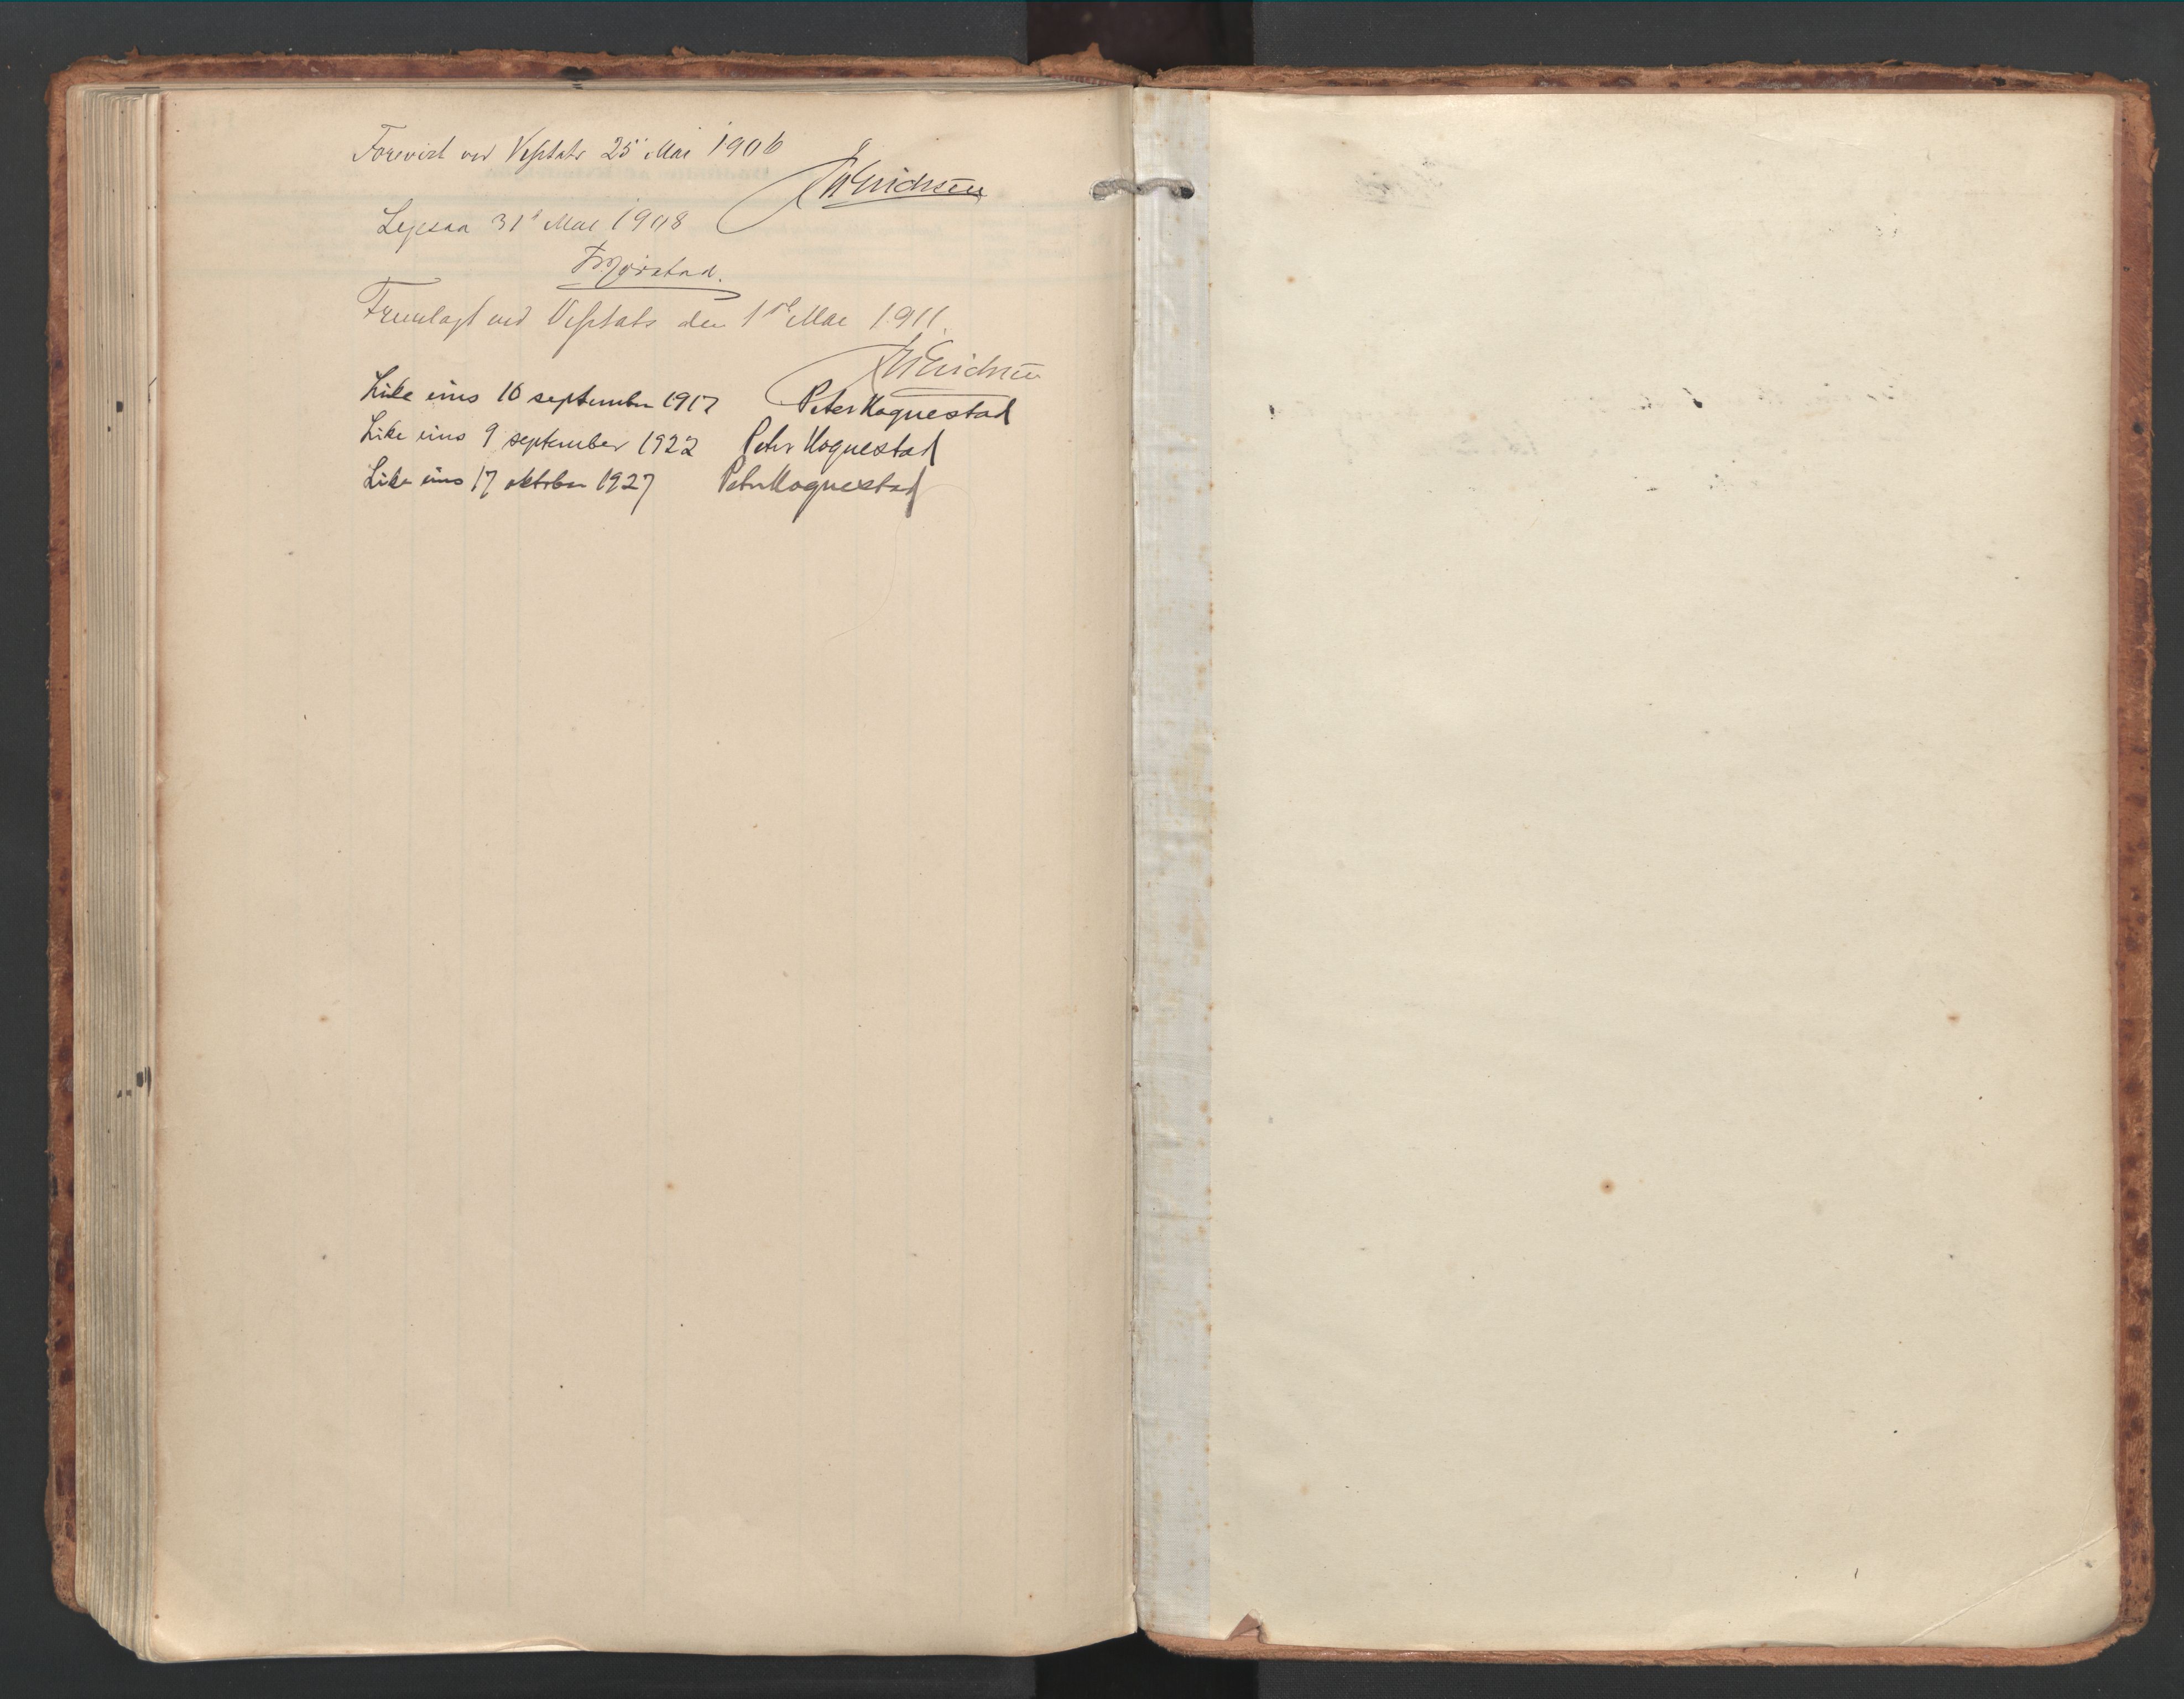 Forevist ved Visitats 25 Mai 1906
JWErichsen
Lepsøa 31 Mai 1908
Mjørstad.
Fremlagt ved Visitats den 1ste Mai 1911.
JWErichsen
Like eins 16 september 1917 Peter Hognestad
Like eins 9 september 1922 Peter Hognestad
Like eins 17 oktober 1927 Peter Hognestad